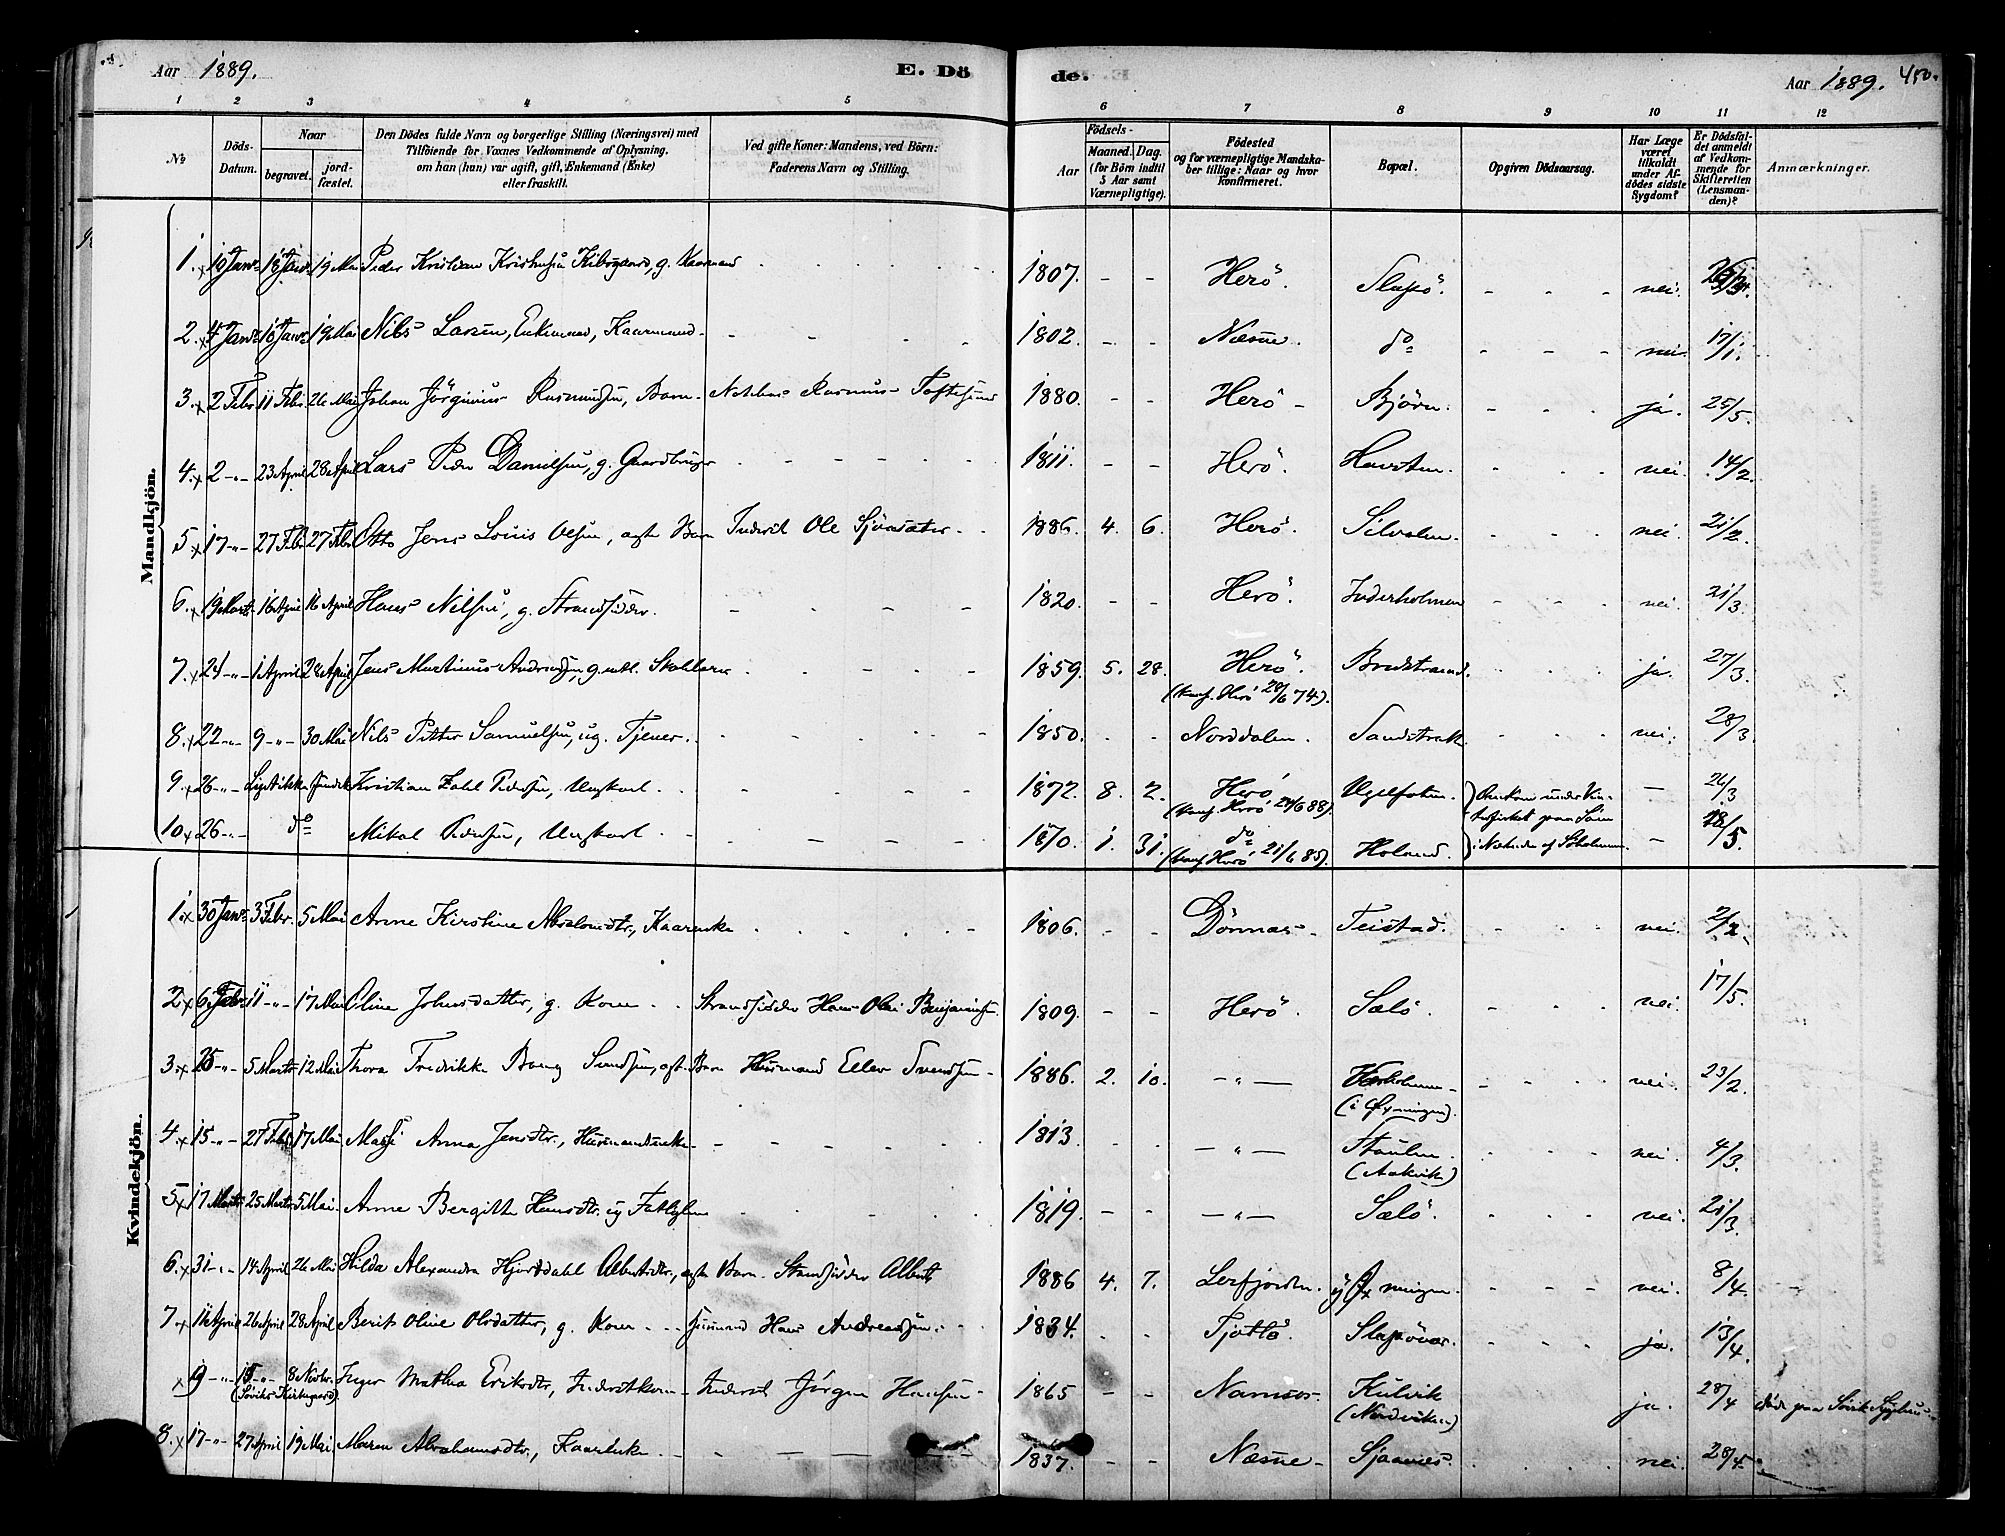 Aar 1889. E. Dö de. Aar 1889. 450.
1 2 3 4 5 6 7 8 9 10 11 12
No
Döds-Datum.
Naar
begravet.
jord-fæstet.
Den Dödes fulde Navn og borgerlige Stilling (Næringsvei) med
Tilföiende for Voxnes Vedkommende af Oplysning.
om han (hun) var ugift, gift, Enkemand (Enke)
eller fraskilt.
Ved gifte Koner: Mandens, ved Börn:
Faderens Navn og Stilling.
Födsels-
Aar
Maaned. Dag.
(for Börn indtil
5 Aar samt
Værnepligtige).
Födested
og for værnepligtige Mandska-
ber tillige: Naar og hvor
konfirmeret.
Bopæl.
Opgiven Dödsaarsag.
Har Læge
været
tilkaldt
under Af-
dödes sidste
Sygdom?
Er Dödsfal-
det anmeldt
af Vedkom-
mende for
Skifteretten
(Lensman-
den)?
Anmærkninger.
Mandkjön.
1. x 10 Janr 18 Janr 19 Mai Peder Kristian g. Kaarmand 1807. - - Herö. Slapö. - - - nei.
2. x 4 Janr 16 Janr 19 Mai Nils Larsen, Enkemand, Kaarmand - 1802. - - Næsne. do - - - nei. 17/1.
3. x 2 Febr 11 Febr 26 Mai Johan Jörginius Rasmussen, Barn - Rasmus 1880. - - Herö - Björn. - - - ja. 25/5.
4. x 2 -"- 23 April 28 April Lars Peder Danielsen, g. Gaardbruger - 1811. - - Herö. - - - nei. 14/2.
5 x 17 -"- 27 Febr 27 Febr Otto Jens Louis Olsen, ægte Barn Inderst Ole 1886. 4. 6. Herö. Silvalen. - - - nei. 21/2.
6. x 19 Marts 16 April 16 April Hans Nilsen, g. Strandsidder. - 1820. - - Herö. Inderholmen - - - nei. 21/3.
7. x 24 -"- 1 April 28 April Jens Martinus Andreassen, g. 1859. 5. 28. Herö. Bredstrand. ja. 27/3.
(konf. Herö 28/6 74).
8. x 22 -"- 9 -"- 30 Mai Nils Petter Samuelsen, ug. Tjener. 1850. - - Norddalen. Sandstrak nei. 28/3.
9. x 26 -"- Lig ikke fundet Kristian Zahl Pedersen, Ungkarl. 1872. 8. 2. Herö - 26/3
(konf. Herö 24/6 88). Omkom under
10 x 26 -"- do Mikal Pedersen, Ungkarl. 1870. 1. 31. do Holand. -
(konf. Herö 21/6 85).
Kvindekjön.
1. x 30 Janr 3 Febr. 5 Mai Anne Kirstine Absalomsdtr., Kaarenke 1806. - - Dönnæs - Teistad. nei. 2/2.
2 x 6 Febr 11 -"- 17 Mai Oline Johnsdatter, g. Kone. Strandsidder Hans Olai Benjaminsen. 1809. - - Herö. Sælö. nei. 17/5.
3. x 25 -"- 5 Marts 12 Mai Thora Fredrikke Bang Svendsen, ægt. Barn Husmand Eller Svendsen - 1886. 2. 10. -"- nei. 23/2.
(i Øxningen).
4. x 15 -"- 27 Febr 17 Mai Anna Jensdtr., Husmandsenke - 1813. -"- nei. 4/3.
(Aakvik)
5 x 17 Marts 25 Marts 5 Mai. Anne Bergitte Hansdtr. ug Fattiglem 1819. - - -"- Sælö. nei. 21/3.
6. x 31 -"- 14 April 26 Mai Hilda Alexandra Hjortdahl Albertsdtr., ægte Barn. Strandsidder Albert 1886 4. 7. Leirfjorden. Øxningen. nei. 8/4.
7. x 11 April 26 April 28 April Berit Oline Olsdatter, g. Kone. Husmand Hans Andreassen. 1834. Tjöttö. Slapövær. ja. 13/4.
x 9 -"- 15 -"- 8 Novbr. Inger Mathea Eriksdtr., Inderstkone - Inderst Jörgen Hansen - 1865 - - Namsos. Kulvik ja. 28/4 död paa Sövik Sygehus
(Söviks Kirkegaard). (Nordviken)
8. x 17 -"- 27 April 19 Mai Maren Abrahamsdtr., Kaarenke. 1837. - - Næsne - Sjaanæs. nei. 28/4.